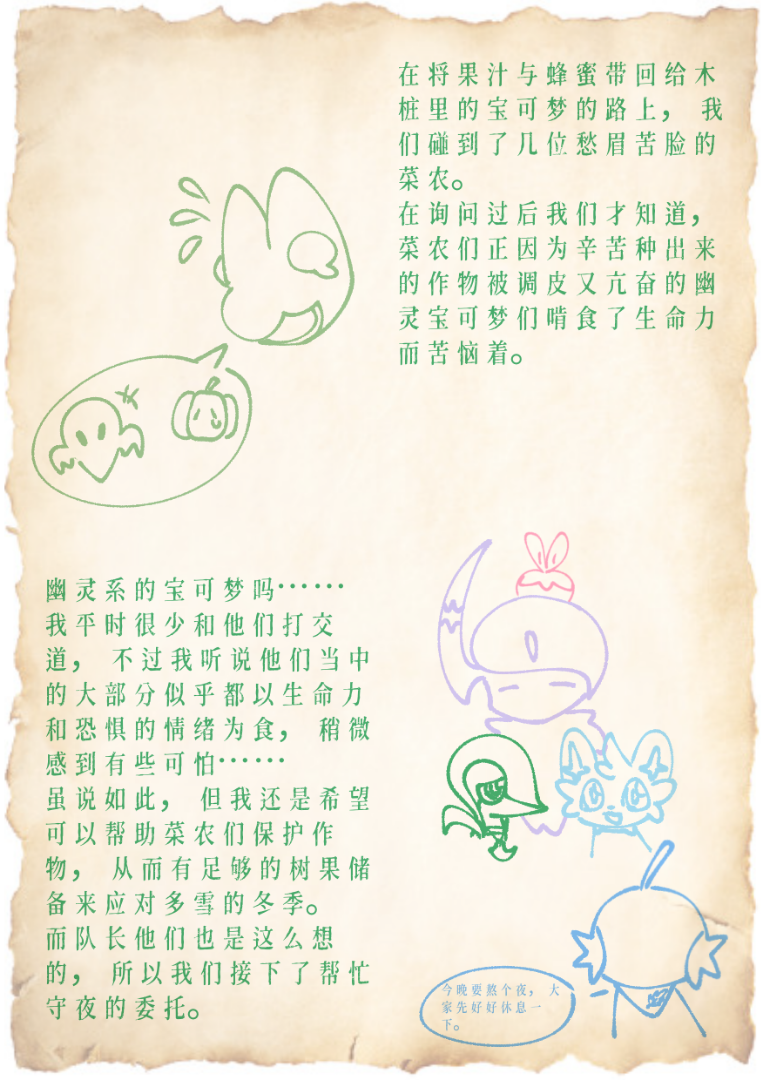 在将果汁与蜂蜜带回给木
桩里的宝可梦的路上，我
们碰到了几位愁眉苦脸的
菜农。
在询问过后我们才知道，
菜农们正因为辛苦种出来
的作物被调皮又亢奋的幽
灵宝可梦们啃食了生命力
而苦恼着。
幽灵系的宝可梦吗……
我平时很少和他们打交
道，不过我听说他们当中
的大部分似乎都以生命力
和恐惧的情绪为食，稍微
感到有些可怕……
虽说如此，但我还是希望
可以帮助菜农们保护作
物，从而有足够的树果储
备来应对多雪的冬季。
而队长他们也是这么想
的，所以我们接下了帮忙
守夜的委托。
今晚要熬个夜，大
家先好好休息一
下。